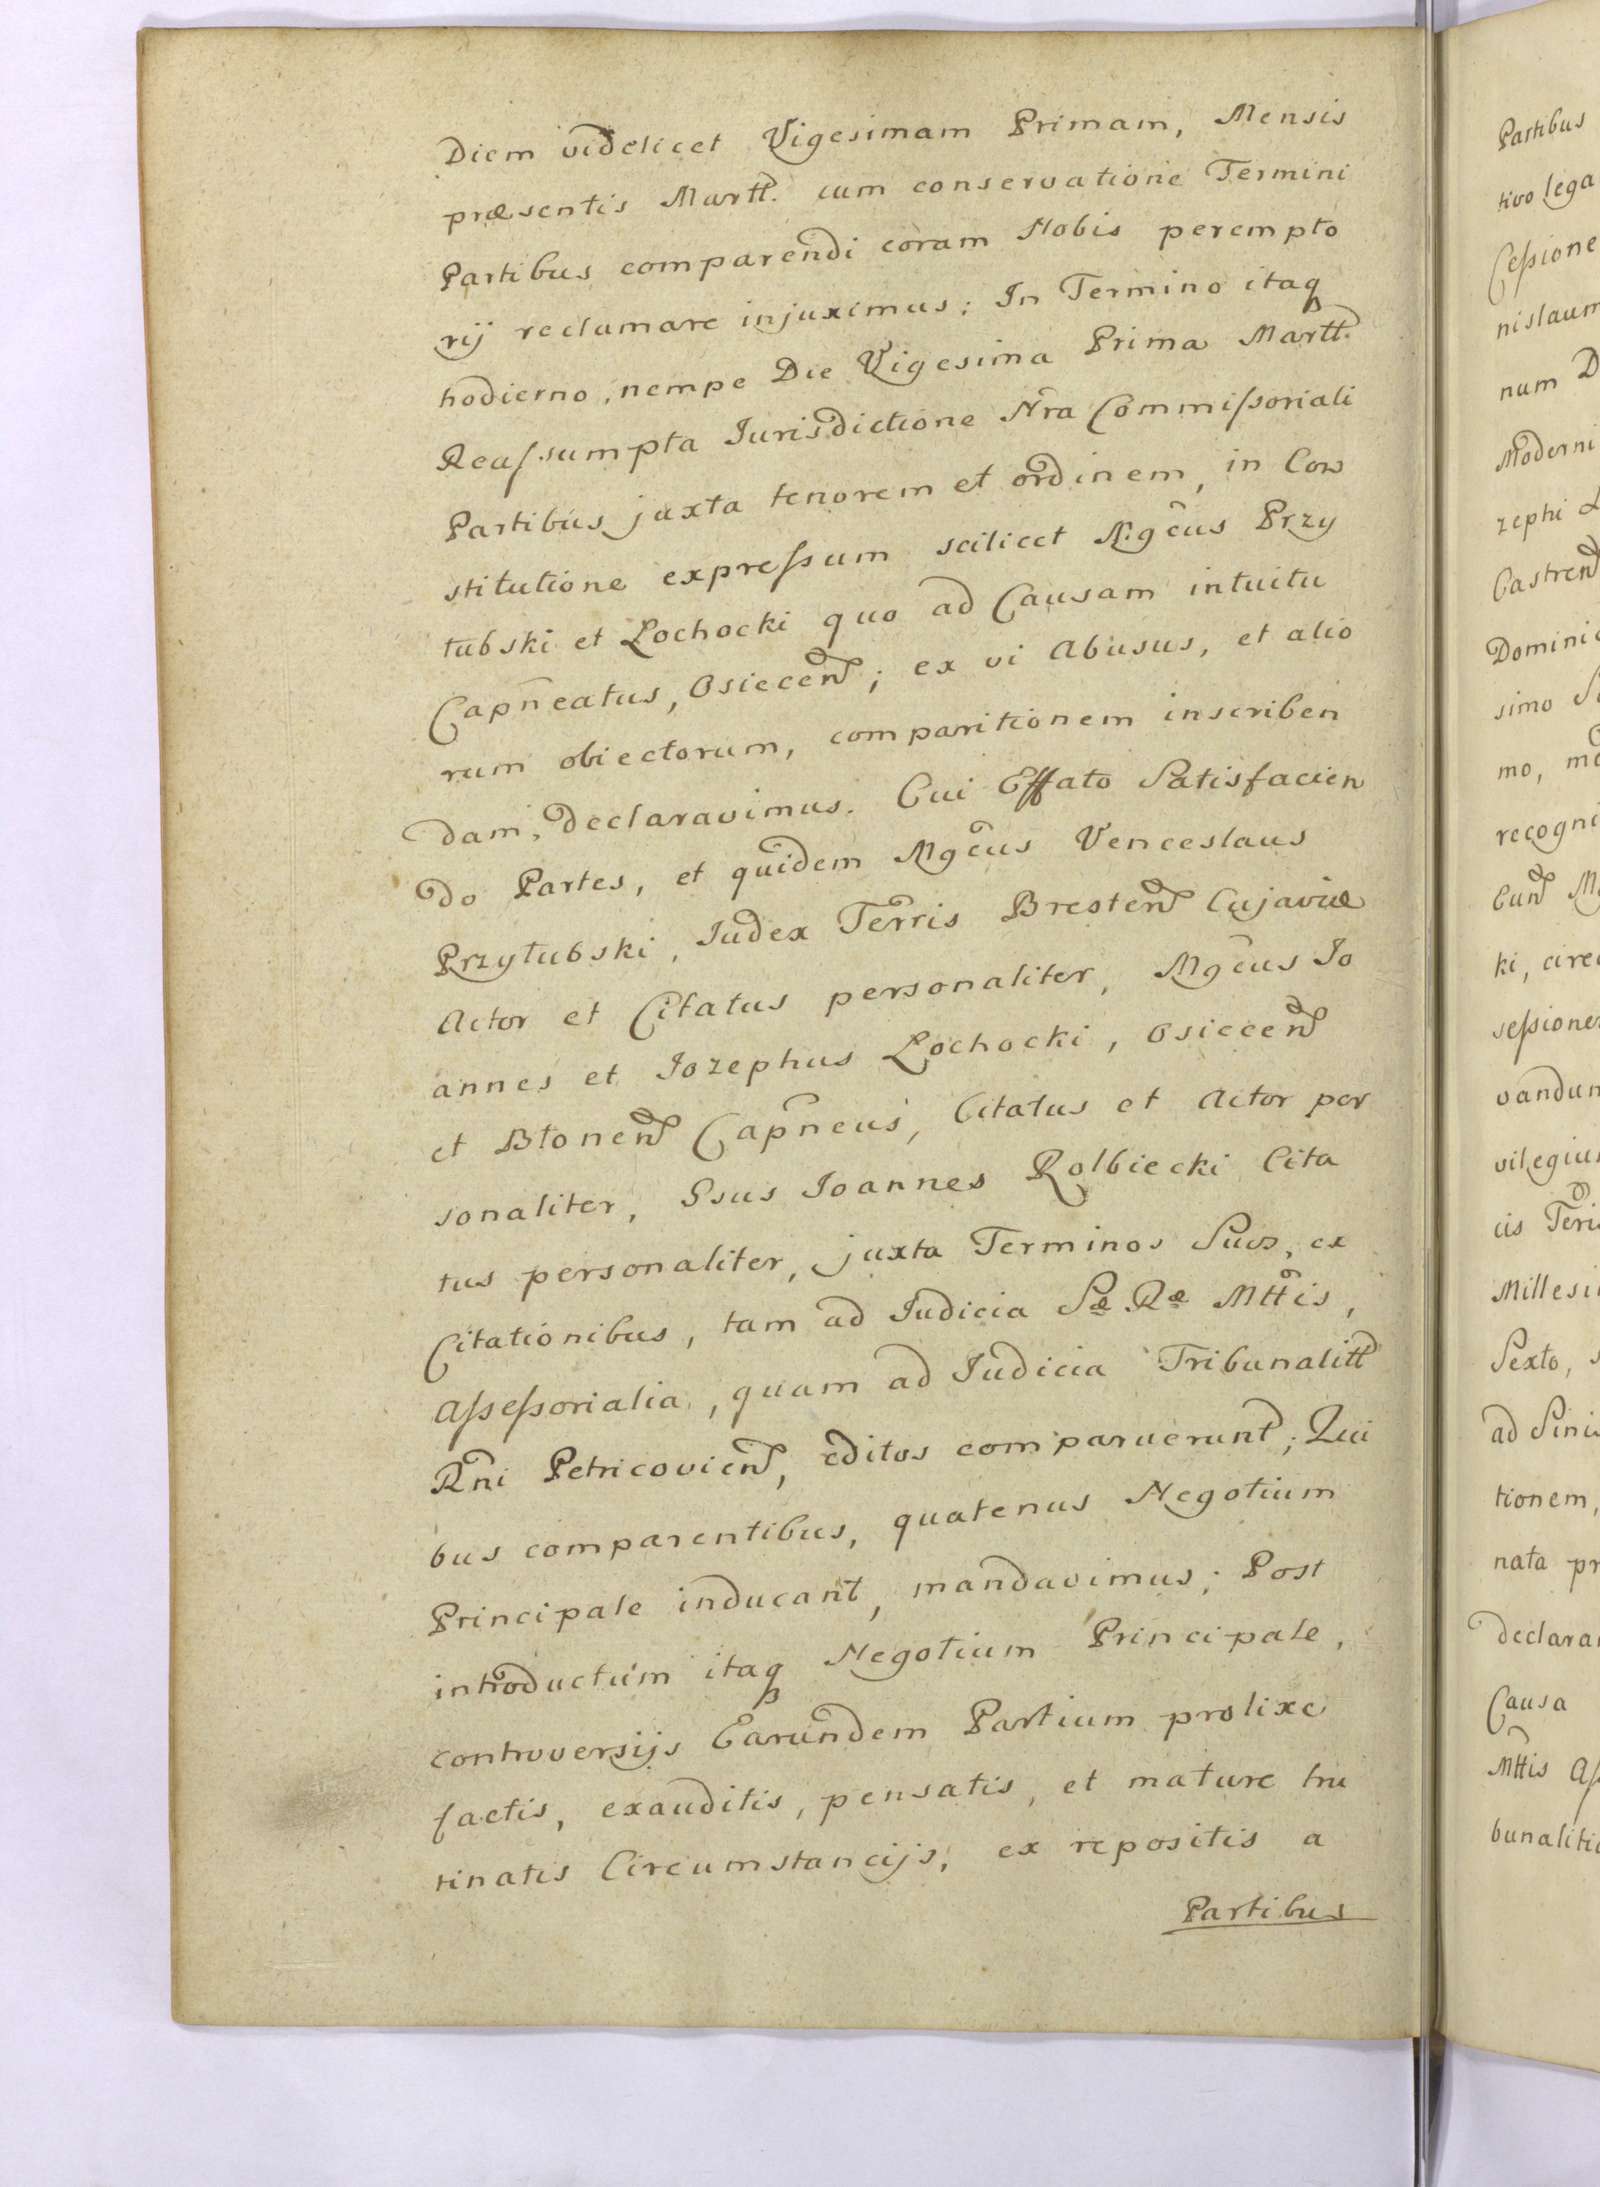 Diem videlicet Vigesimam Primam, Mensis
præsentis Martt. cum conservatione Termini
Partibus comparendi coram Nobis perempto
rij reclamare injuximus; In Termino itaq
hodierno, nempe Die Vigesima Prima Martt.
Reaſsumpta Jurisdictione Nra Commiſsoriali
Partibus juxta tenorem et ordinem, in Con
stitutione expreſsum scilicet M.gcus Przy
łubski et Łochocki quo ad Causam intuitu
Capneatus, Osiecen; ex vi Abusus, et alio
rum obiectorum, comparitionem inscriben
dam, declaravimus. Cui Effato Satisfacien
do Partes, et quidem Mgcus Venceslaus
Przyłubski, Judex Terris Bresten Cujaviæ
Actor et Citatus personaliter, Mgcus Jo
annes et Jozephus Łochocki, Osiecen
et Błonen Capneus, Citatus et Actor per
sonaliter, Gsus Joannes Rolbiecki Cita
tus personaliter, juxta Terminos Suos, ex
Citationibus, tam ad Judicia Sæ Ræ Mttis,
Aſseſsorialia, quam ad Judicia Tribunalitt
Rni Petricovien, editos comparuerunt; Qui
bus comparentibus, quatenus Negotium
Principale inducant, mandavimus; Post
introductum itaq Negotium Principale,
controversijs Earundem Partium prolixe
factis, exauditis, pensatis, et mature tru
tinatis Circumstancijs, ex repositis a
Partibus
Partibus
tivo lega
Ceſsione
nislaum
num D
Moderni
zephi Ł
Castren
Dominic
simo
mo,
recogni
Cun
ki, circ
seſsiones
vandum
vilegium
cis Terris
Millesi
Sexto,
ad Sinis
tionem,
nata pr
declarar
Causa
Mttis Aſ
bunaliti